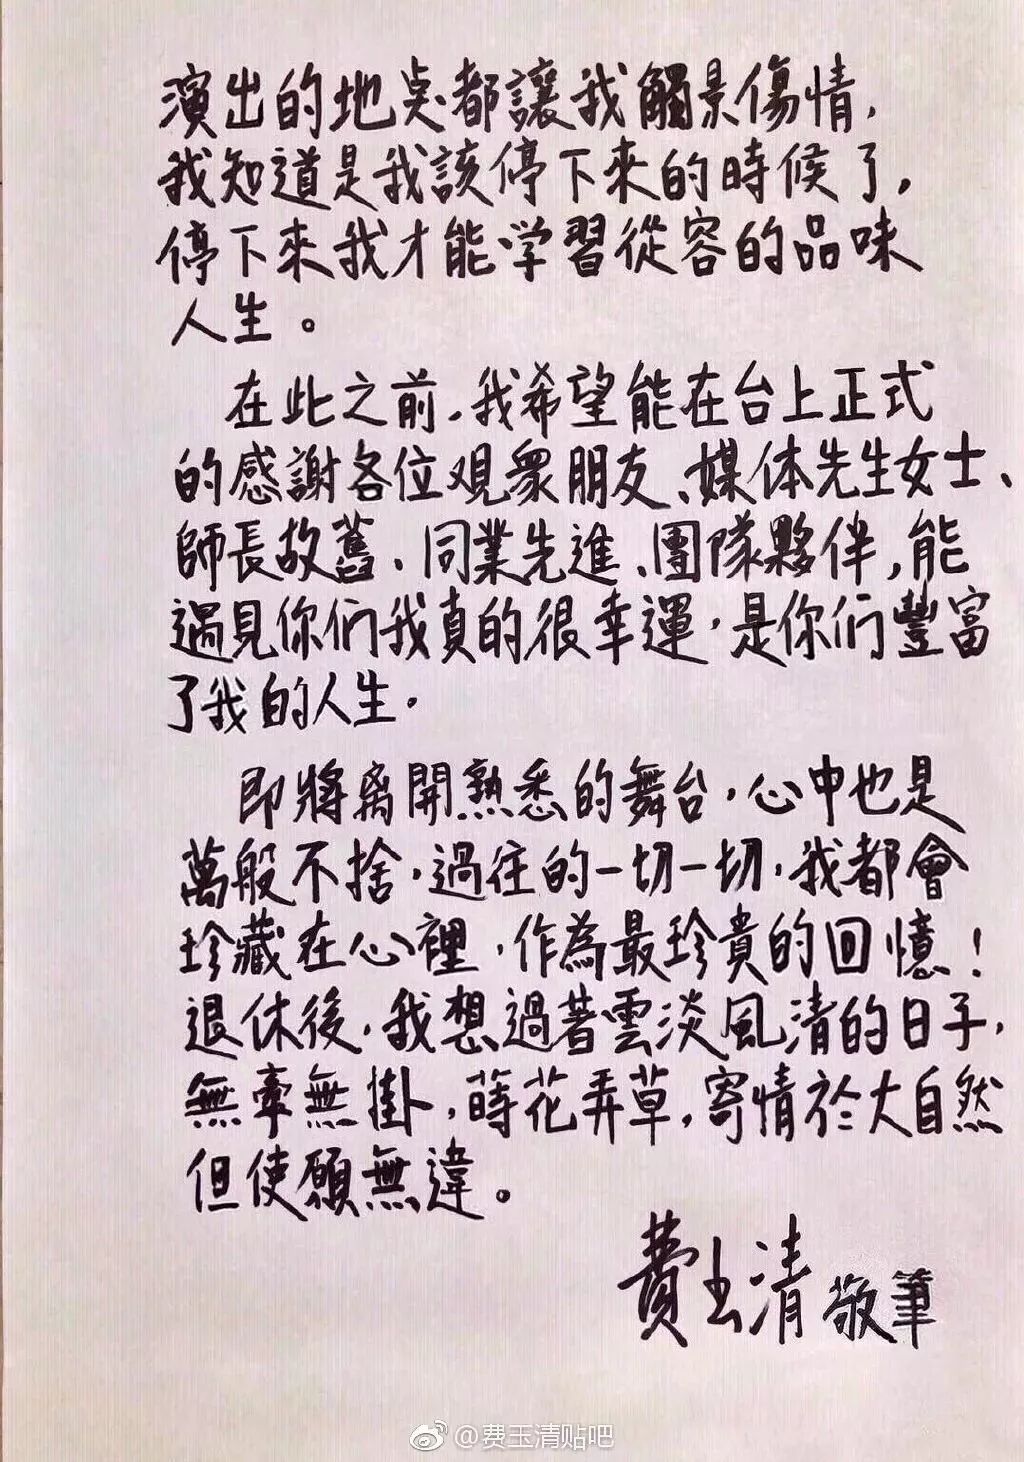 演出的地点都讓我觸景傷情，
我知道是我該停下來的時候了，
停下來我才能学習從容的品味
人生。
在此之前，我希望能在台上正式
的感謝各位观衆朋友、媒体先生女士、
師長故舊、同業先進、團隊夥伴，能
遇見你们我真的很幸運，是你们豐富
了我的人生．
即將离開熟悉的舞台，心中也是
萬般不捨，過往的一切一切，我都會
珍藏在心裡，作為最珍貴的回憶！
退休後，我想過著雲淡風清的日子，
無牽無掛，蒔花弄草，寄情於大自然
但使願無違。
費玉清 敬筆
@费玉清贴吧